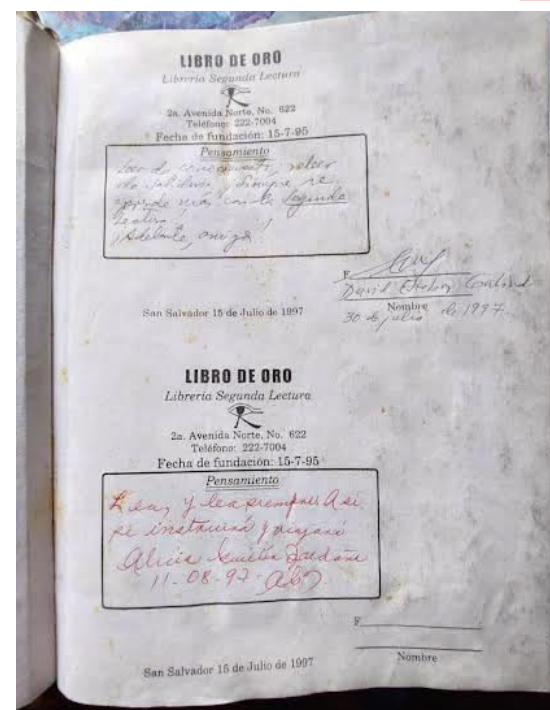 LIBRO DE ORO
Librería Segunda Lectura
2a. Avenida Norte, No. 622
Teléfono: 222-7004
Fecha de fundación: 15-7-95
Pensamiento
Leer da conocimiento, releer
da sabiduría y siempre se
aprende más con la Segunda
Lectura
¡Adelante, amiga!
F
David
Nombre
30 de julio de 1997.
San Salvador 15 de Julio de 1997
LIBRO DE ORO
Librería Segunda Lectura
2a. Avenida Norte, No. 622
Teléfono: 222-7004
Fecha de fundación: 15-7-95
Pensamiento
Lea, y lea siempre. Asi
se instruirá y viajará
Alicia Zaldaña
11-08-97
F
Nombre
San Salvador 15 de Julio de 1997